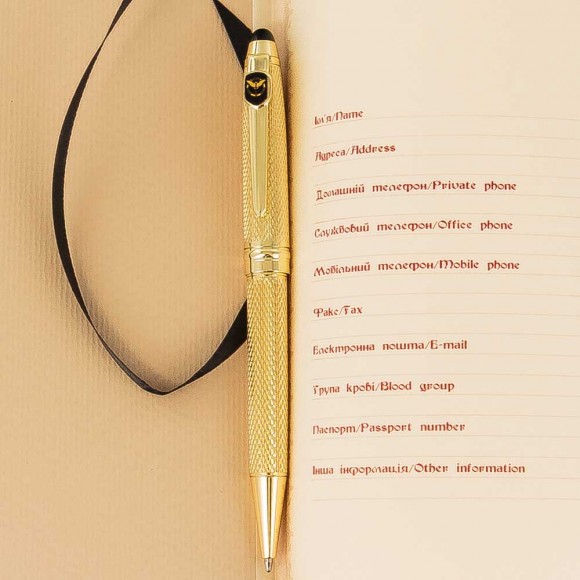 Ім'я/Name
Адреса/Address
Домашній телефон/Private phone
Службовий телефон/Office phone
Мобільний телефон/Mobile phone
Факс/Fax
Електронна пошта/E-mail
Група крові/Blood group
Паспорт/Passport number
Інша інформація/Other information